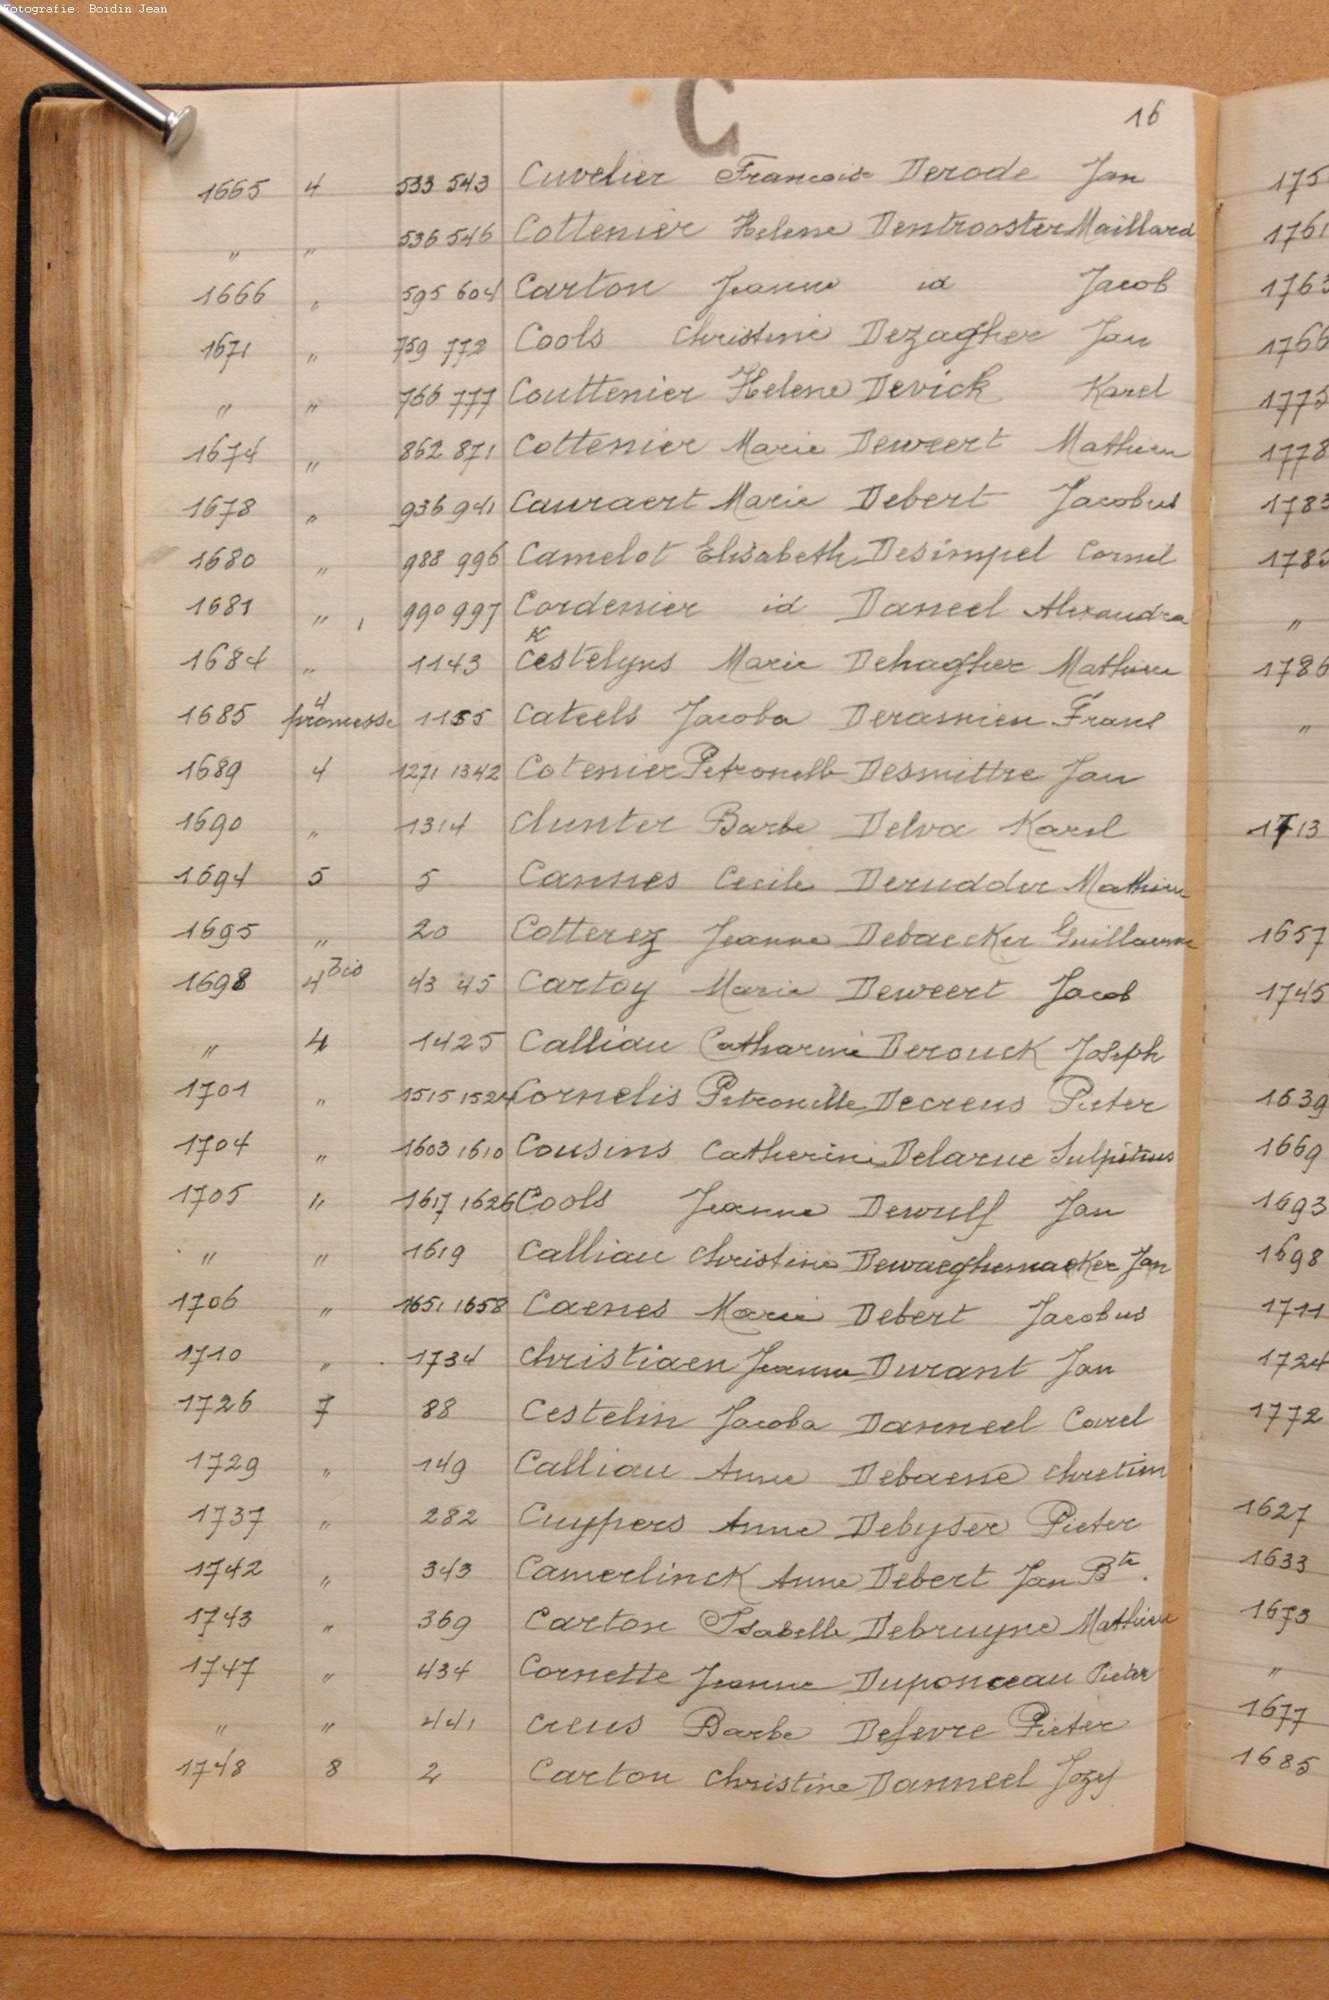 Fotografie: Boidin Jean
C
16
1665 4 533 543 Cuvelier Francois Derode Jan
" " 536 546 Cottenier Helene Dentrooster Maillard
1666 " 595 604 Carton Jeanne id Jacob
1671 " 759 772 Cools Christine Dezagher Jan
" " 766 777 Couttenier Helene Devick Karel
1674 " 862 871 Cottenier Marie Deweert Mathieu
1678 " 936 941 Cauraert Marie Debert Jacobus
1680 " 988 996 Camelot Elisabeth Desimpel Cornil
1681 " 990 997 Cordenier id Daneel Alexandra
K
1684 " 1143 Cestelyns Marie Dehagher Mathieu
4
1685 promesse 1155 Cateels Jacoba Deramien Frans
1689 4 1271 1342 Cotenier Petronelle Desmittre Jan
1690 " 1314 Clunter Barbe Delva Karel
1694 5 5 Cannes Cecile Derudder Mathieu
1695 " 20 Cotterez Jeanne Debaecker Guillaume
1698 4 bis 43 45 Cartoy Marie Deweert Jacob
" 4 1425 Calliau Catharine Derouck Joseph
1701 " 1515 1524 Cornelis Petronille Decreus Pieter
1704 " 1603 1610 Cousins Catherine Delarue Sulpitius
1705 " 1617 1626 Cools Jeanne Dewulf Jan
" " 1619 Calliau Christine Dewaeghemaeker Jan
1706 " 1651 1658 Caenes Marie Debert Jacobus
1710 " 1734 Christiaen Jeanne Durant Jan
1726 7 88 Cestelin Jacoba Danneel Carel
1729 " 149 Calliau Anne Debaene Chretien
1737 " 282 Cuypers Anne Debyser Pieter
1742 " 343 Camerlinck Anne Debert Jan Bte.
1743 " 369 Carton Isabelle Debruyne Mathieu
1747 " 434 Cornette Jeanne Duponceau Pieter
" " 441 Creus Barbe Defevre Pieter
1748 8 2 Carton Christine Danneel Jozef
175
1761
1763
1766
1775
1778
1783
1785
"
1786
"
1713
1657
1745
1639
1669
1693
1698
1711
1724
1772
1627
1633
1673
"
1677
1685